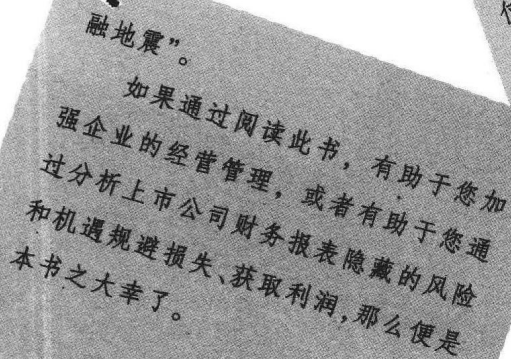 融地震”。
如果通过阅读此书，有助于您加
强企业的经营管理，或者有助于您通
过分析上市公司财务报表隐藏的风险
和机遇规避损失、获取利润，那么便是
本书之大幸了。